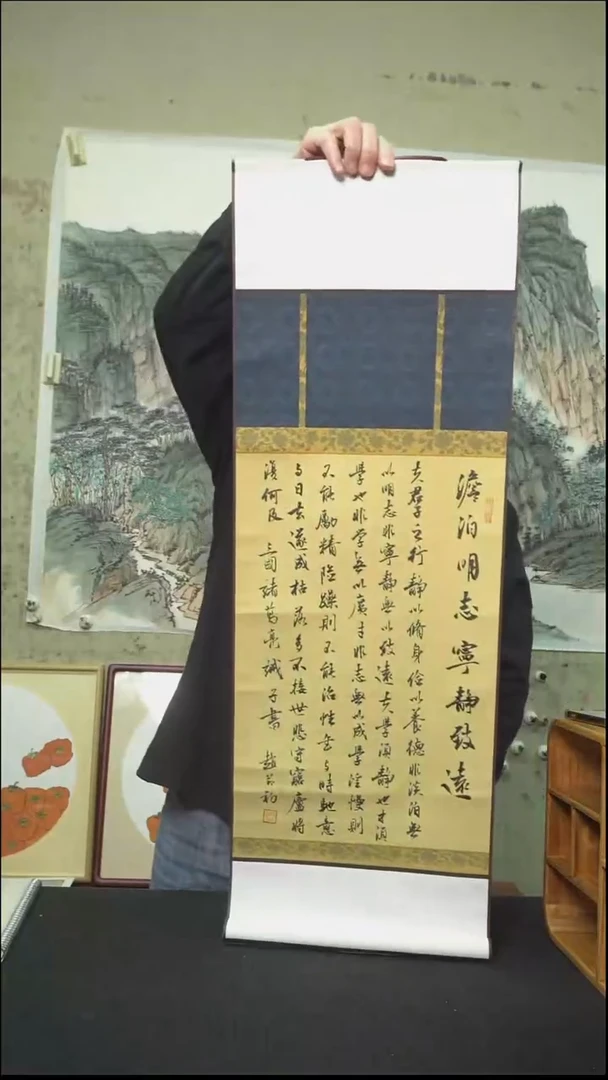 澹泊明志寧靜致遠
夫君子之行靜以脩身儉以養德非淡泊無
以明志非寧靜無以致遠夫學須靜也才須
學也非学無以廣才非志無以成學淫慢則
不能勵精險躁則不能治性年与時馳意
与日去遂成枯落多不接世悲守窮廬將
復何及 三國諸葛亮誡子書 趙朴初